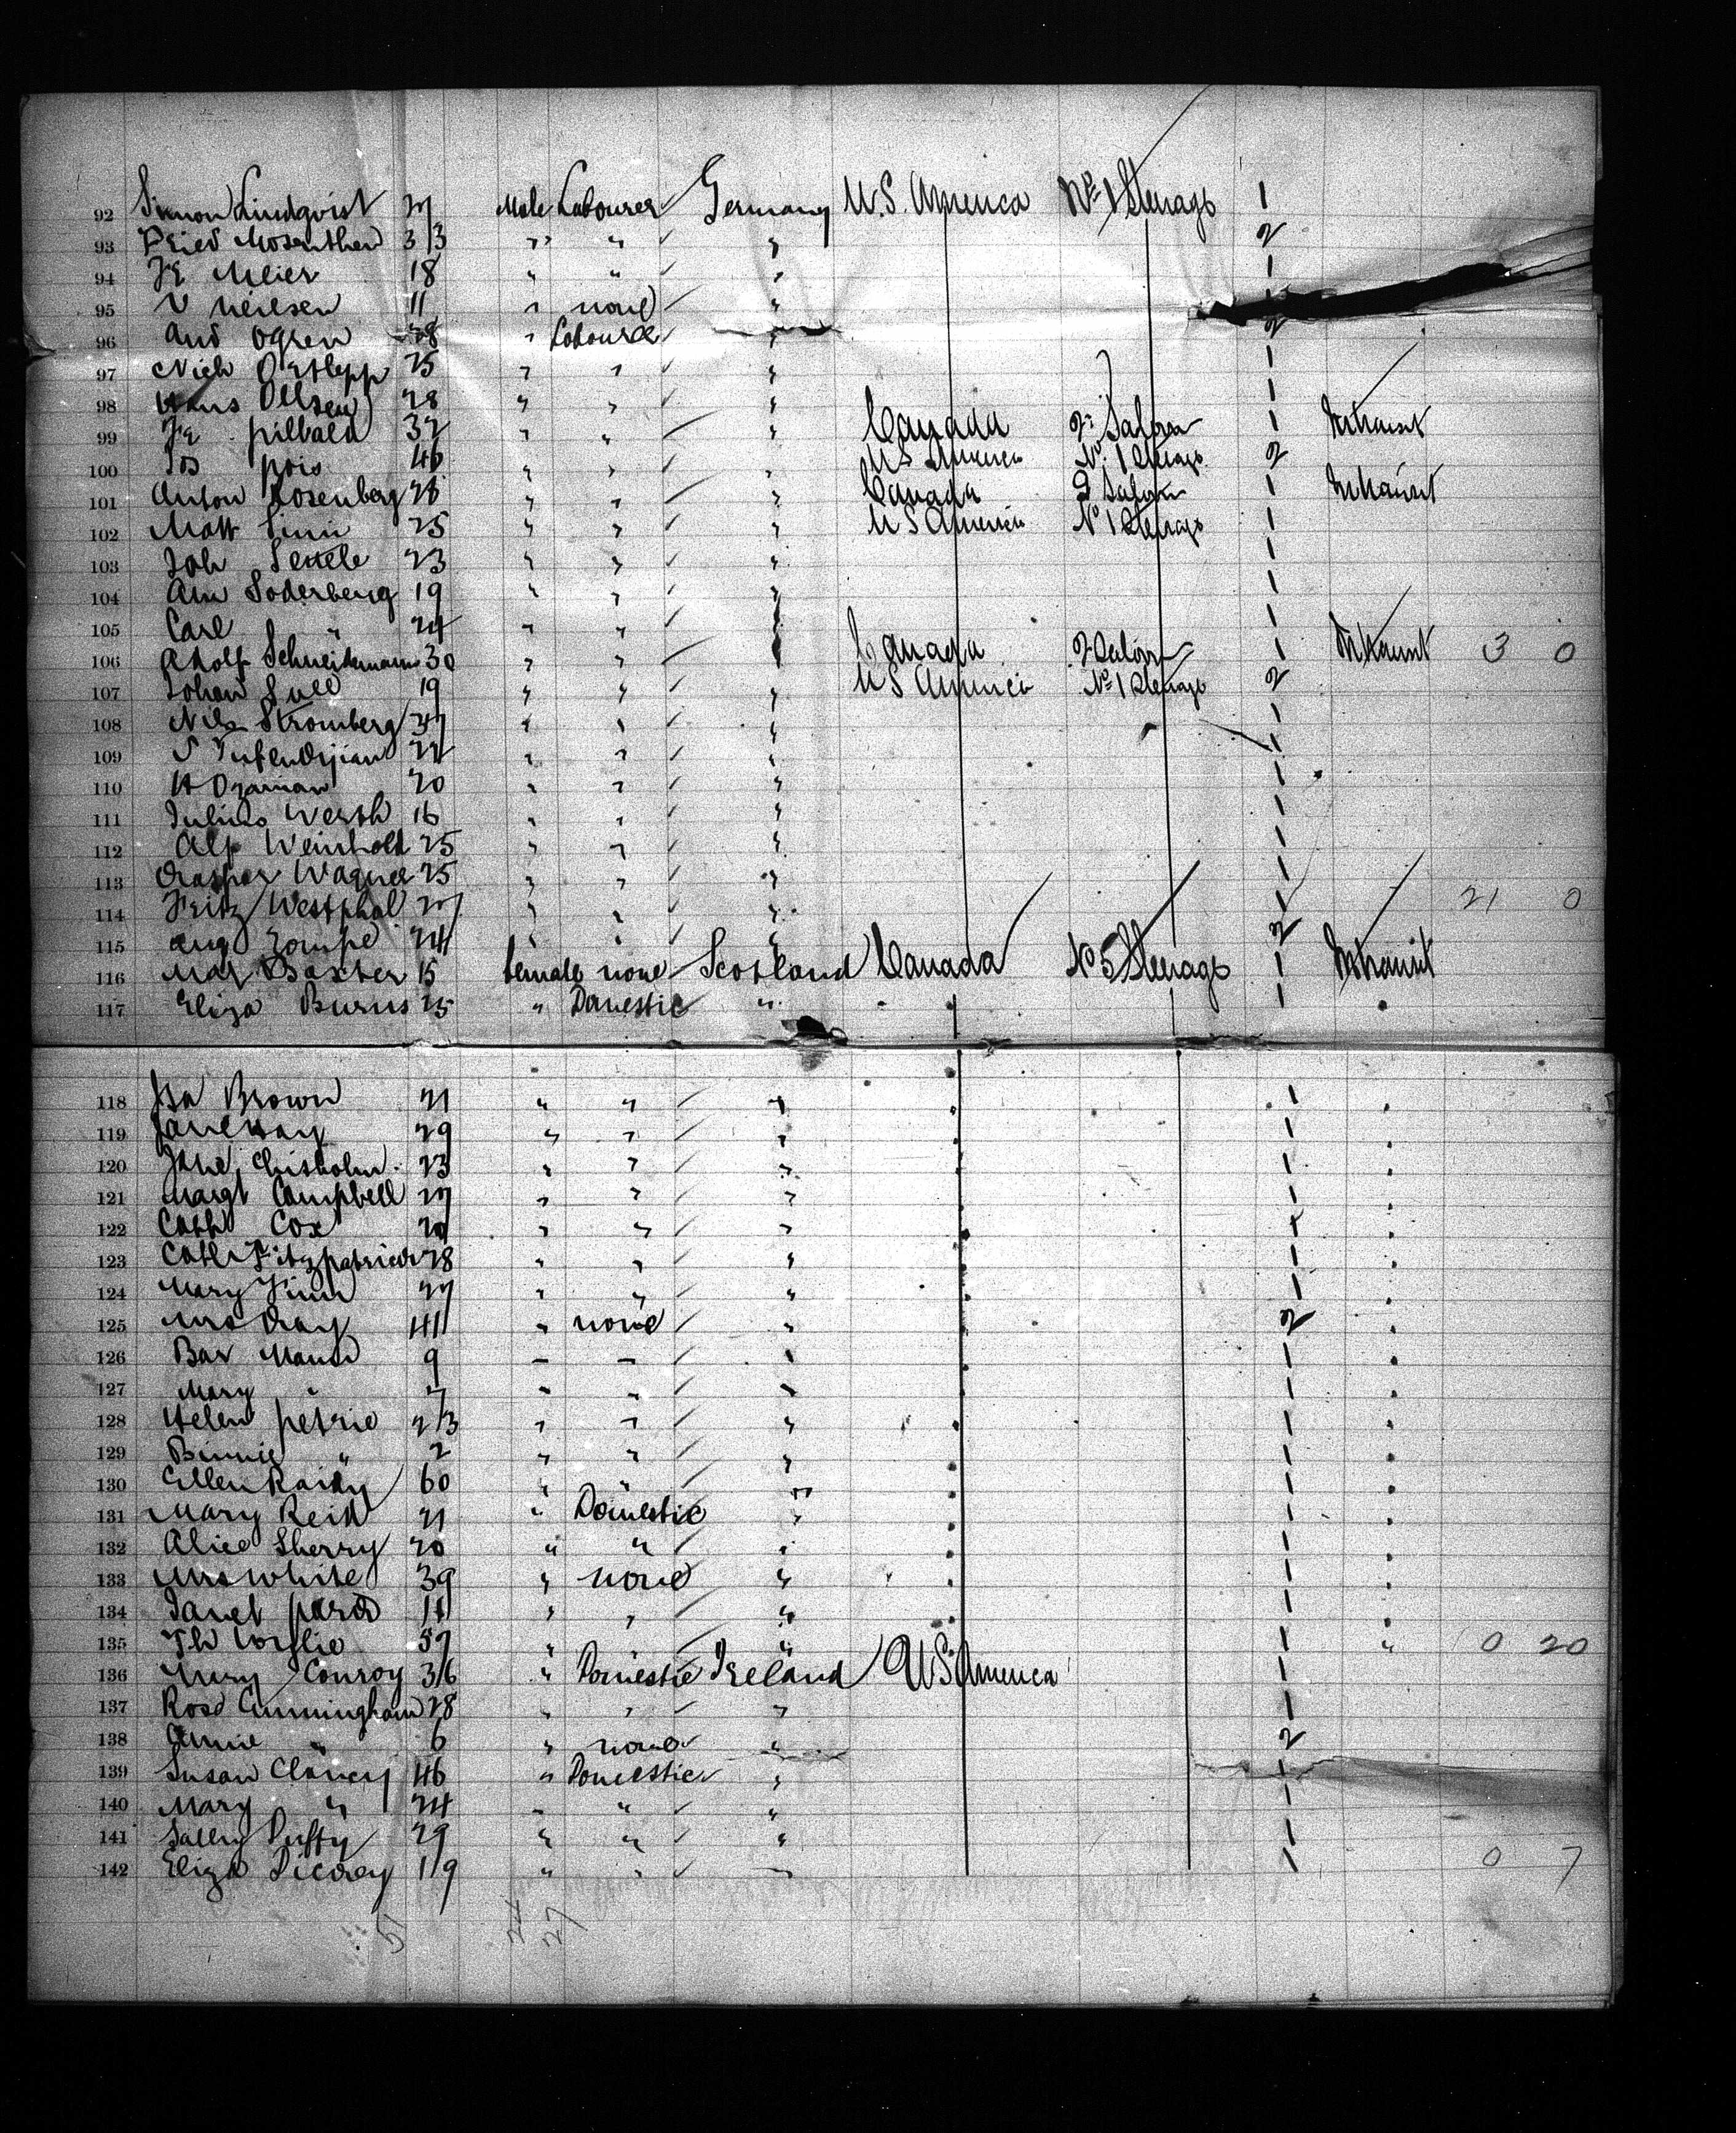 92 Simon Lindqvist 27 Male Labourer Germany U.S. America No 1 Steerage 1
93 Fried Mosenthen 33 " " " 2
94 Fr Meier 18 " " " 1
95 V Neilsen 11 " none " 1
96 And Ogren 38 " Labourer " 2
97 Nich 25 " " " 1
98 Hans Ollsen 28 " " " 1
99 Fr pillbald 32 " " " Canada 2 Saloon 1 Intransit
100 Jos pois 46 " " " U S America No 1 Steerage 2
101 Anton Rosenberg 26 " " " Canada 2 Saloon 1 Intransit
102 Matt Sinii 25 " " " U S America No 1 Steerage 1
103 Joh 23 " " " 1
104 Am Soderberg 19 " " " 1
105 Carl " 24 " " " 1
106 Adolf Schneidemann 30 " " Canada 2 Saloon 1 Intransit 3 0
107 Johan 19 " " " U S America No 1 Steerage 2
108 Nils Stromberg 37 " " " 1
109 S Tufendjian 22 " " " 1
110 20 " " " 1
111 Julius Werth 16 " " " 1
112 Alf Weinhold 25 " " " 1
113 Casper Wagner 25 " " " 1
114 Fritz Westphal 27 " " " 1 21 0
115 Aug Zompe 24 " " " 2
116 Mar Baxter 15 female none Scotland Canada No 5 Steerage 1 Intransit
117 Eliza Burns 25 " Domestic " " 1 "
118 Isa Brown 21 " " " " 1 "
119 Jane Way 29 " " " " 1 "
120 Jane Chisholm 23 " " " " 1 "
121 Margt Campbell 27 " " " 1 "
122 Cath Cox 20 " " " " 1 "
123 Cath Fitzpatrick 28 " " " " 1 "
124 Mary Finn 27 " " " " 1 "
125 Mrs Gray 41 " none " " 2 "
126 Bar Mann 9 " " " " 1 "
127 Mary " 7 " " " " 1 "
128 Helen petrie 23 " " " " 1 "
129 Binnie " 2 " " " 1 "
130 Ellen 60 " " " " 1 "
131 Mary Reid 21 " Domestic " " 1 "
132 Alice Sherry 20 " " " " 1 "
133 Mrs White 39 " none " " 1 "
134 Janet 11 " " " " 1 "
135 Th Wyllie 57 " " " 1 " 0 20
136 Mary Conroy 36 " Domestic Ireland U S America 1
137 Rose Cunningham 28 " " " 1
138 Annie " 6 " none " 2
139 Susan Clancy 46 " Domestic " 1
140 Mary " 24 " " " 1
141 Sally Duffy 29 " " " 1
142 Eliza 19 " " " 1 0 7
51 24 27